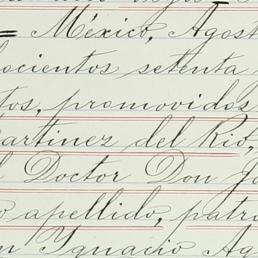 = México, Agost
ocientos setenta
tos, promovidos
artinez del Rio,
l Doctor Don J
o apellido, patro
n Ignacio Ag